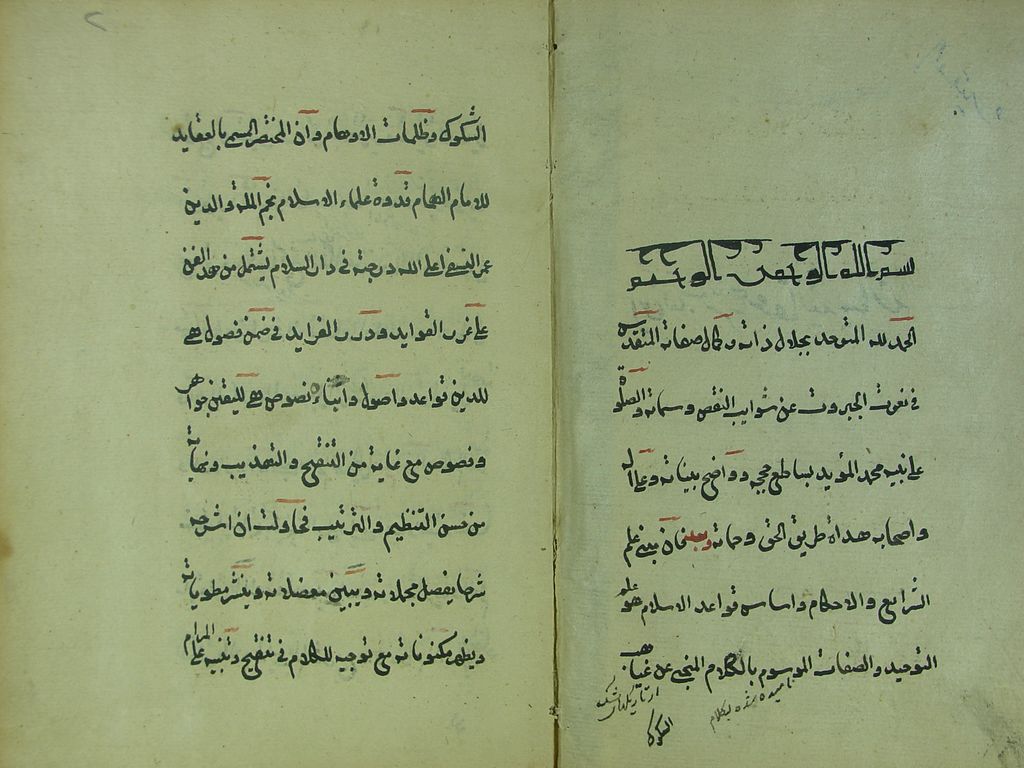 بسم الله الرحمن الرحيم
الحمد لله المتوحد بجلال ذاته وكمال صفاته المتقدس
في نعوت الجبروت عن شوايب النقص وسماته والصلوة
على نبيه محمد المؤيد بساطع حججه وواضح بيناته وعلى اله
واصحابه هداة طريق الحق وحماته وبعد فان مبنى علم
الشرايع والاحكام واساس قواعد الاسلام هو علم
التوحيد والصفات الموسوم بالكلام المنجى عن غياهب
الشكوك
الشكوك وظلمات الاوهام وان المختصر المسمى بالعقايد
للامام الهمام قدوة علماء الاسلام نجم الملة والدين
عمر النسفي اعلى الله درجته في دار السلام يشتمل من هذا الفن
على غرر الفوايد ودرر الفرايد في ضمن فصول هي
للدين قواعد واصول واثناء نصوص هي لليقين جواهر
وفصوص مع غاية من التنقيح والتهذيب ونهاية
من حسن التنظيم والترتيب فحاولت ان اشرحه
شرحا يفصل مجملاته ويبين معضلاته وينشر مطوياته
ويظهر مكنوناته مع توجيه للكلام في تنقيح وتنبيه على المرام